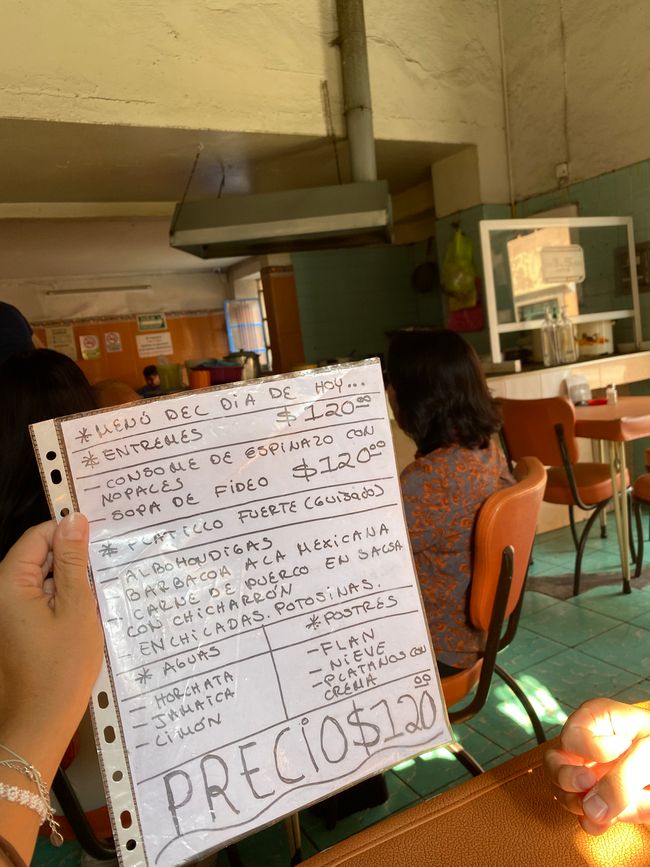 * MENÚ DEL DIA DE HOY...
* ENTREMES $120.00
- CONSOME DE ESPINAZO CON
NOPALES $120.00
SOPA DE FIDEO
* PLATILLO FUERTE (GUISADO)
ALBOHONDIGAS
BARBACOA A LA MEXICANA
- CARNE DE PUERCO EN SALSA
CON CHICHARRÓN
- ENCHILADAS. POTOSINAS.
* AGUAS
- HORCHATA
- JAMAICA
- LIMÓN
* POSTRES
- FLAN
- NIEVE
- PLATANOS CON
CREMA
PRECIO $120.00